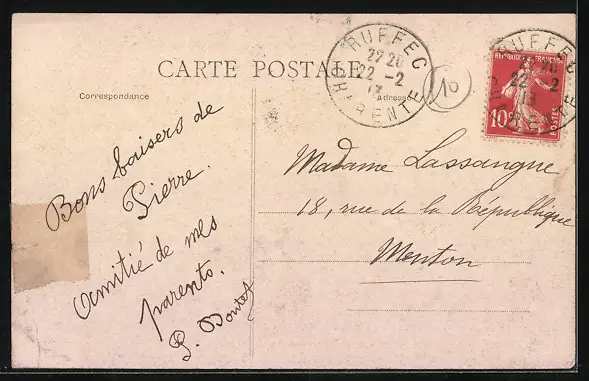 CARTE POSTALE
Correspondance
Adresse
RUFFEC
22 20
22 -2
13
CHARENTE
10
RUFFEC
22 -2
13
REPUBLIQUE FRANÇAISE
10c
POSTES
Bons baisers de
Pierre.
Amitié de mes
parents.
Madame Lassangue
18, rue de la République
Menton